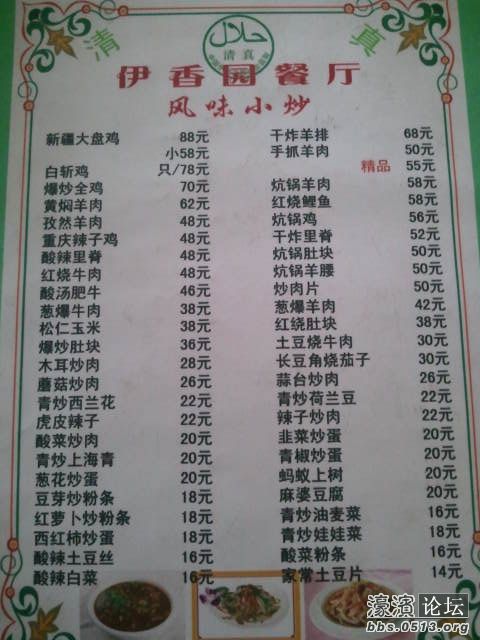 清 حلال 真
清真
伊香园餐厅
风味小炒
新疆大盘鸡 88元
小58元
白斩鸡 只/78元
爆炒全鸡 70元
黄焖羊肉 62元
孜然羊肉 48元
重庆辣子鸡 48元
酸辣里脊 48元
红烧牛肉 48元
酸汤肥牛 46元
葱爆牛肉 38元
松仁玉米 38元
爆炒肚块 36元
木耳炒肉 28元
蘑菇炒肉 26元
青炒西兰花 22元
虎皮辣子 22元
酸菜炒肉 20元
青炒上海青 20元
葱花炒蛋 20元
豆芽炒粉条 18元
红萝卜炒粉条 18元
西红柿炒蛋 18元
酸辣土豆丝 16元
酸辣白菜 16元
干炸羊排 68元
手抓羊肉 50元
精品 55元
炕锅羊肉 58元
红烧鲤鱼 58元
炕锅鸡 56元
干炸里脊 52元
炕锅肚块 50元
炕锅羊腰 50元
炒肉片 50元
葱爆羊肉 42元
红绕肚块 38元
土豆烧牛肉 30元
长豆角烧茄子 30元
蒜台炒肉 26元
青炒荷兰豆 22元
辣子炒肉 22元
韭菜炒蛋 20元
青椒炒蛋 20元
蚂蚁上树 20元
麻婆豆腐 20元
青炒油麦菜 16元
青炒娃娃菜 18元
酸菜粉条 16元
家常土豆片 14元
濠滨论坛
bbs.0513.org